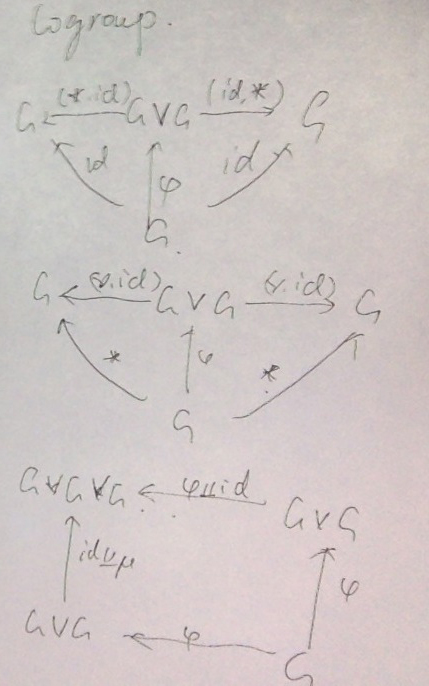 Cogroup.
G ←(*.id) G∨G (id,*)→ G
id φ id
G.
G ←(ν.id) G∨G (ν.id)→ G
* φ *
G
G∨G∨G ← φ⊔id
G∨G
id⊔μ φ
G∨G ← φ
G